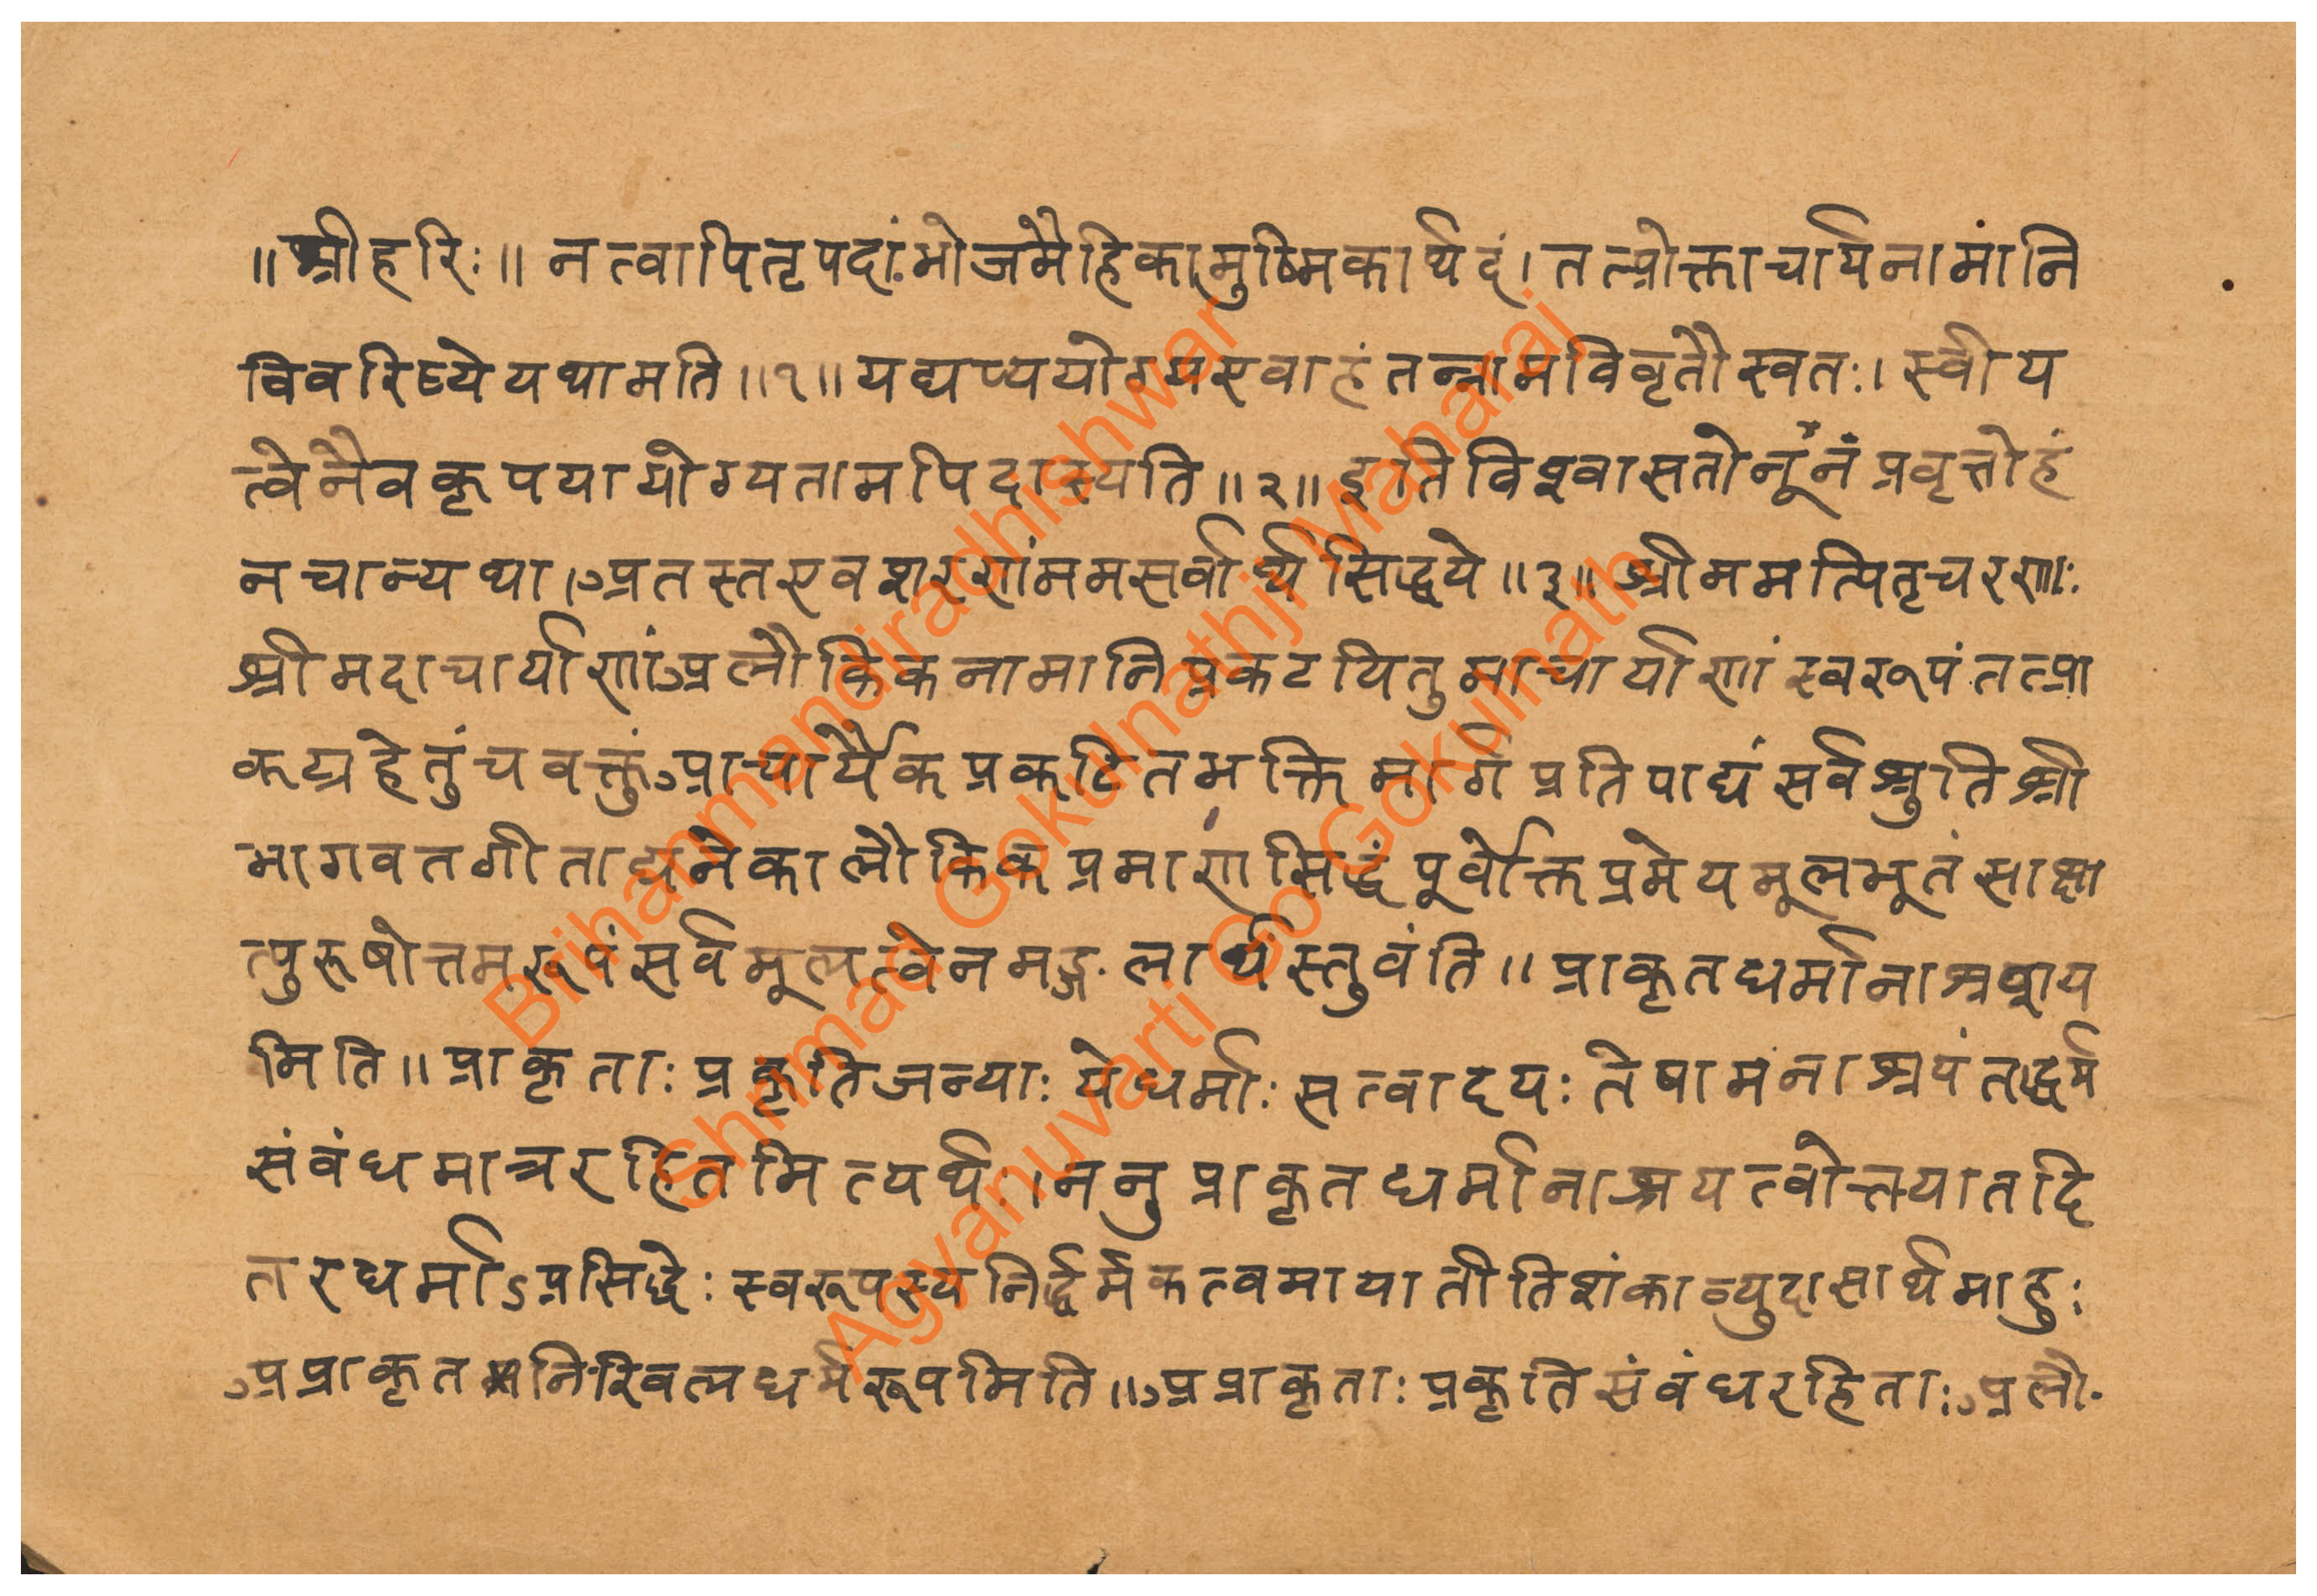 ॥श्रीहरिः॥ नत्वापितृपदांभोजमैहिकामुष्मिकार्थदं। तत्प्रोक्ताचार्यनामांनि
विवरिष्येयथामति॥१॥ यद्यप्ययोग्यएवाहंतन्नामविवृतौस्वतः। स्वीय
त्वेनैवकृपयायोग्यतामपिदास्यति॥२॥ इतिविश्वासतोनूंनंप्रवृत्तोहं
नचान्यथा।अतस्तएवशरणंममसर्वार्थसिद्धये॥३॥ श्रीममत्पितृचरणाः
श्रीमदाचार्याणांअलौकिकनामानिप्रकटयितुमाचार्याणांस्वरूपंतत्प्रा
कट्यहेतुंचवक्तुंआचार्यैकप्रकटितभक्तिमार्गप्रतिपाद्यंसर्वश्रुतिश्री
भागवतगीताद्यनेकालौकिकप्रमाणसिद्धंपूर्वोक्तप्रमेयमूलभूतंसाक्षा
त्पुरूषोत्तमरूपंसर्वमूलत्वेनमङ्गलार्थंस्तुवंति॥ प्राकृतधर्मानाश्रय
मिति॥ प्राकृताः प्रकृतिजन्याः येधर्माः सत्वादयः तेषामनाश्रयंतद्धर्म
संवंधमात्ररहितमित्यर्थः।ननु प्राकृतधर्मानाश्रयत्वोक्तयातदि
तरधर्माऽप्रसिद्धेः स्वरूपस्यनिर्द्धर्मकत्वमायातीतिशंकाव्युदासार्थमाहुः
अप्राकृतनिखिलधर्मरूपमिति॥अप्राकृताः प्रकृतिसंवंधरहिताः अलौ-
Brihammandiradhishwar
Shrimad Gokulnathji Maharaj
Agyanuvarti Go Gokulnath